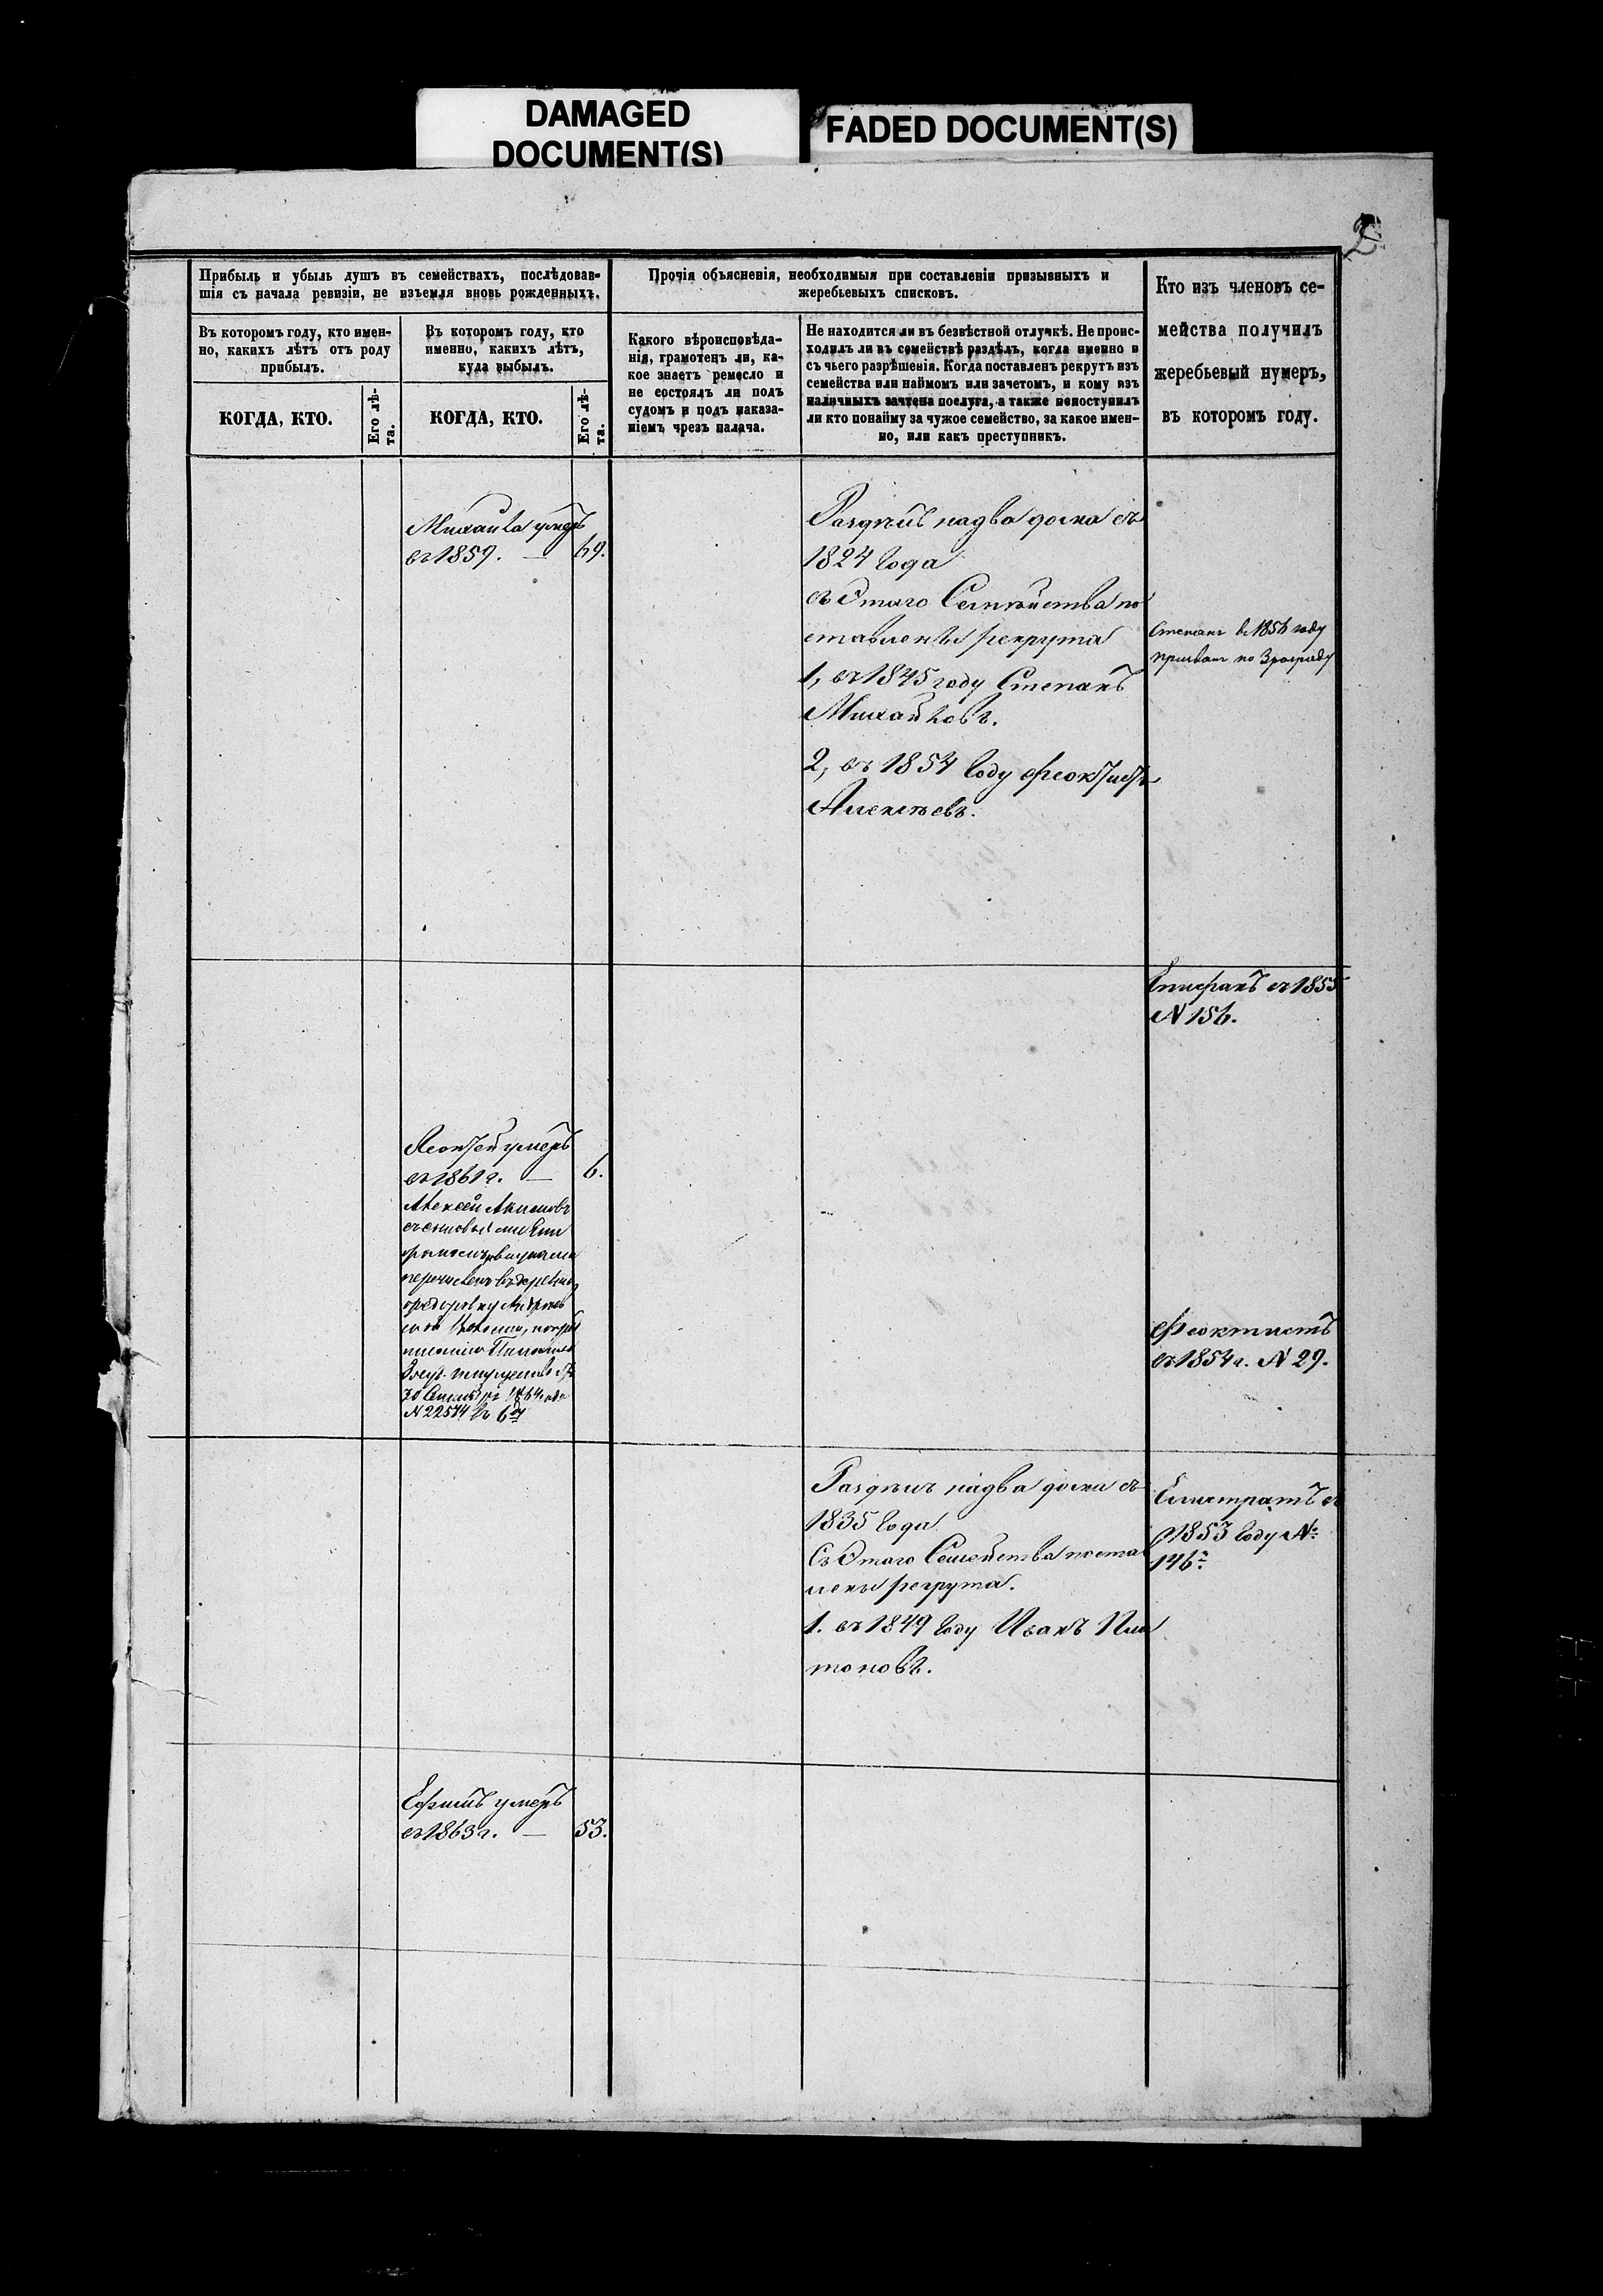 DAMAGED
DOCUMENT(S)
FADED DOCUMENT(S)
2
Прибыль и убыль душъ въ семействахъ, послѣдовав-
шія съ начала ревизіи, не изъемля вновь рожденныхъ.
Въ которомъ году, кто имен-
но, какихъ лѣтъ отъ роду
прибылъ.
КОГДА, КТО.
Его лѣ-
та.
Въ которомъ году, кто
именно, какихъ лѣтъ,
куда выбылъ.
КОГДА, КТО.
Его лѣ-
та.
Прочія объясненія, необходимыя при составленіи призывныхъ и
жеребьевыхъ списковъ.
Какого вѣроисповѣда-
нія, грамотенъ ли, ка-
кое знаетъ ремесло и
не состоялъ ли подъ
судомъ и подъ наказа-
ніемъ чрезъ палача.
Не находится ли въ безвѣстной отлучкѣ. Не проис-
ходилъ ли въ семействѣ раздѣлъ, когда именно и
съ чьего разрѣшенія. Когда поставленъ рекрутъ изъ
семейства или наймомъ или зачетомъ, и кому изъ
наличныхъ зачтена послуга, а также непоступилъ
ли кто понайму за чужое семейство, за какое имен-
но, или какъ преступникъ.
Кто изъ членовъ се-
мейства получилъ
жеребьевый нумеръ,
въ которомъ году.
Михаила умеръ
въ 1859. — 69.
Раздѣлъ надва дома съ
1824 года
съ Этаго Семѣйства по
ставлены рекрута
1, въ 1845 году Степанъ
Михайловъ.
2, въ 1854 году Феоктистъ
Алексѣевъ.
Степанъ въ 1856 году
Епифанъ въ 1855
N 156.
Леонтей умеръ
въ 1861 г. — 6.
Алексѣй Акимовъ
перечисленъ въ деревню
30 Сентября 1864 года
N 22574
Феоктистъ
въ 1854 г. N 29.
Раздѣлъ надва дома съ
1835 года
Съ Этаго Семейства постав
лены рекрута.
1. въ 1849 году Иванъ Пла
тоновъ.
Елистратъ в
1853 году №
146.
Ефимъ умеръ
въ 1863 г. — 53.